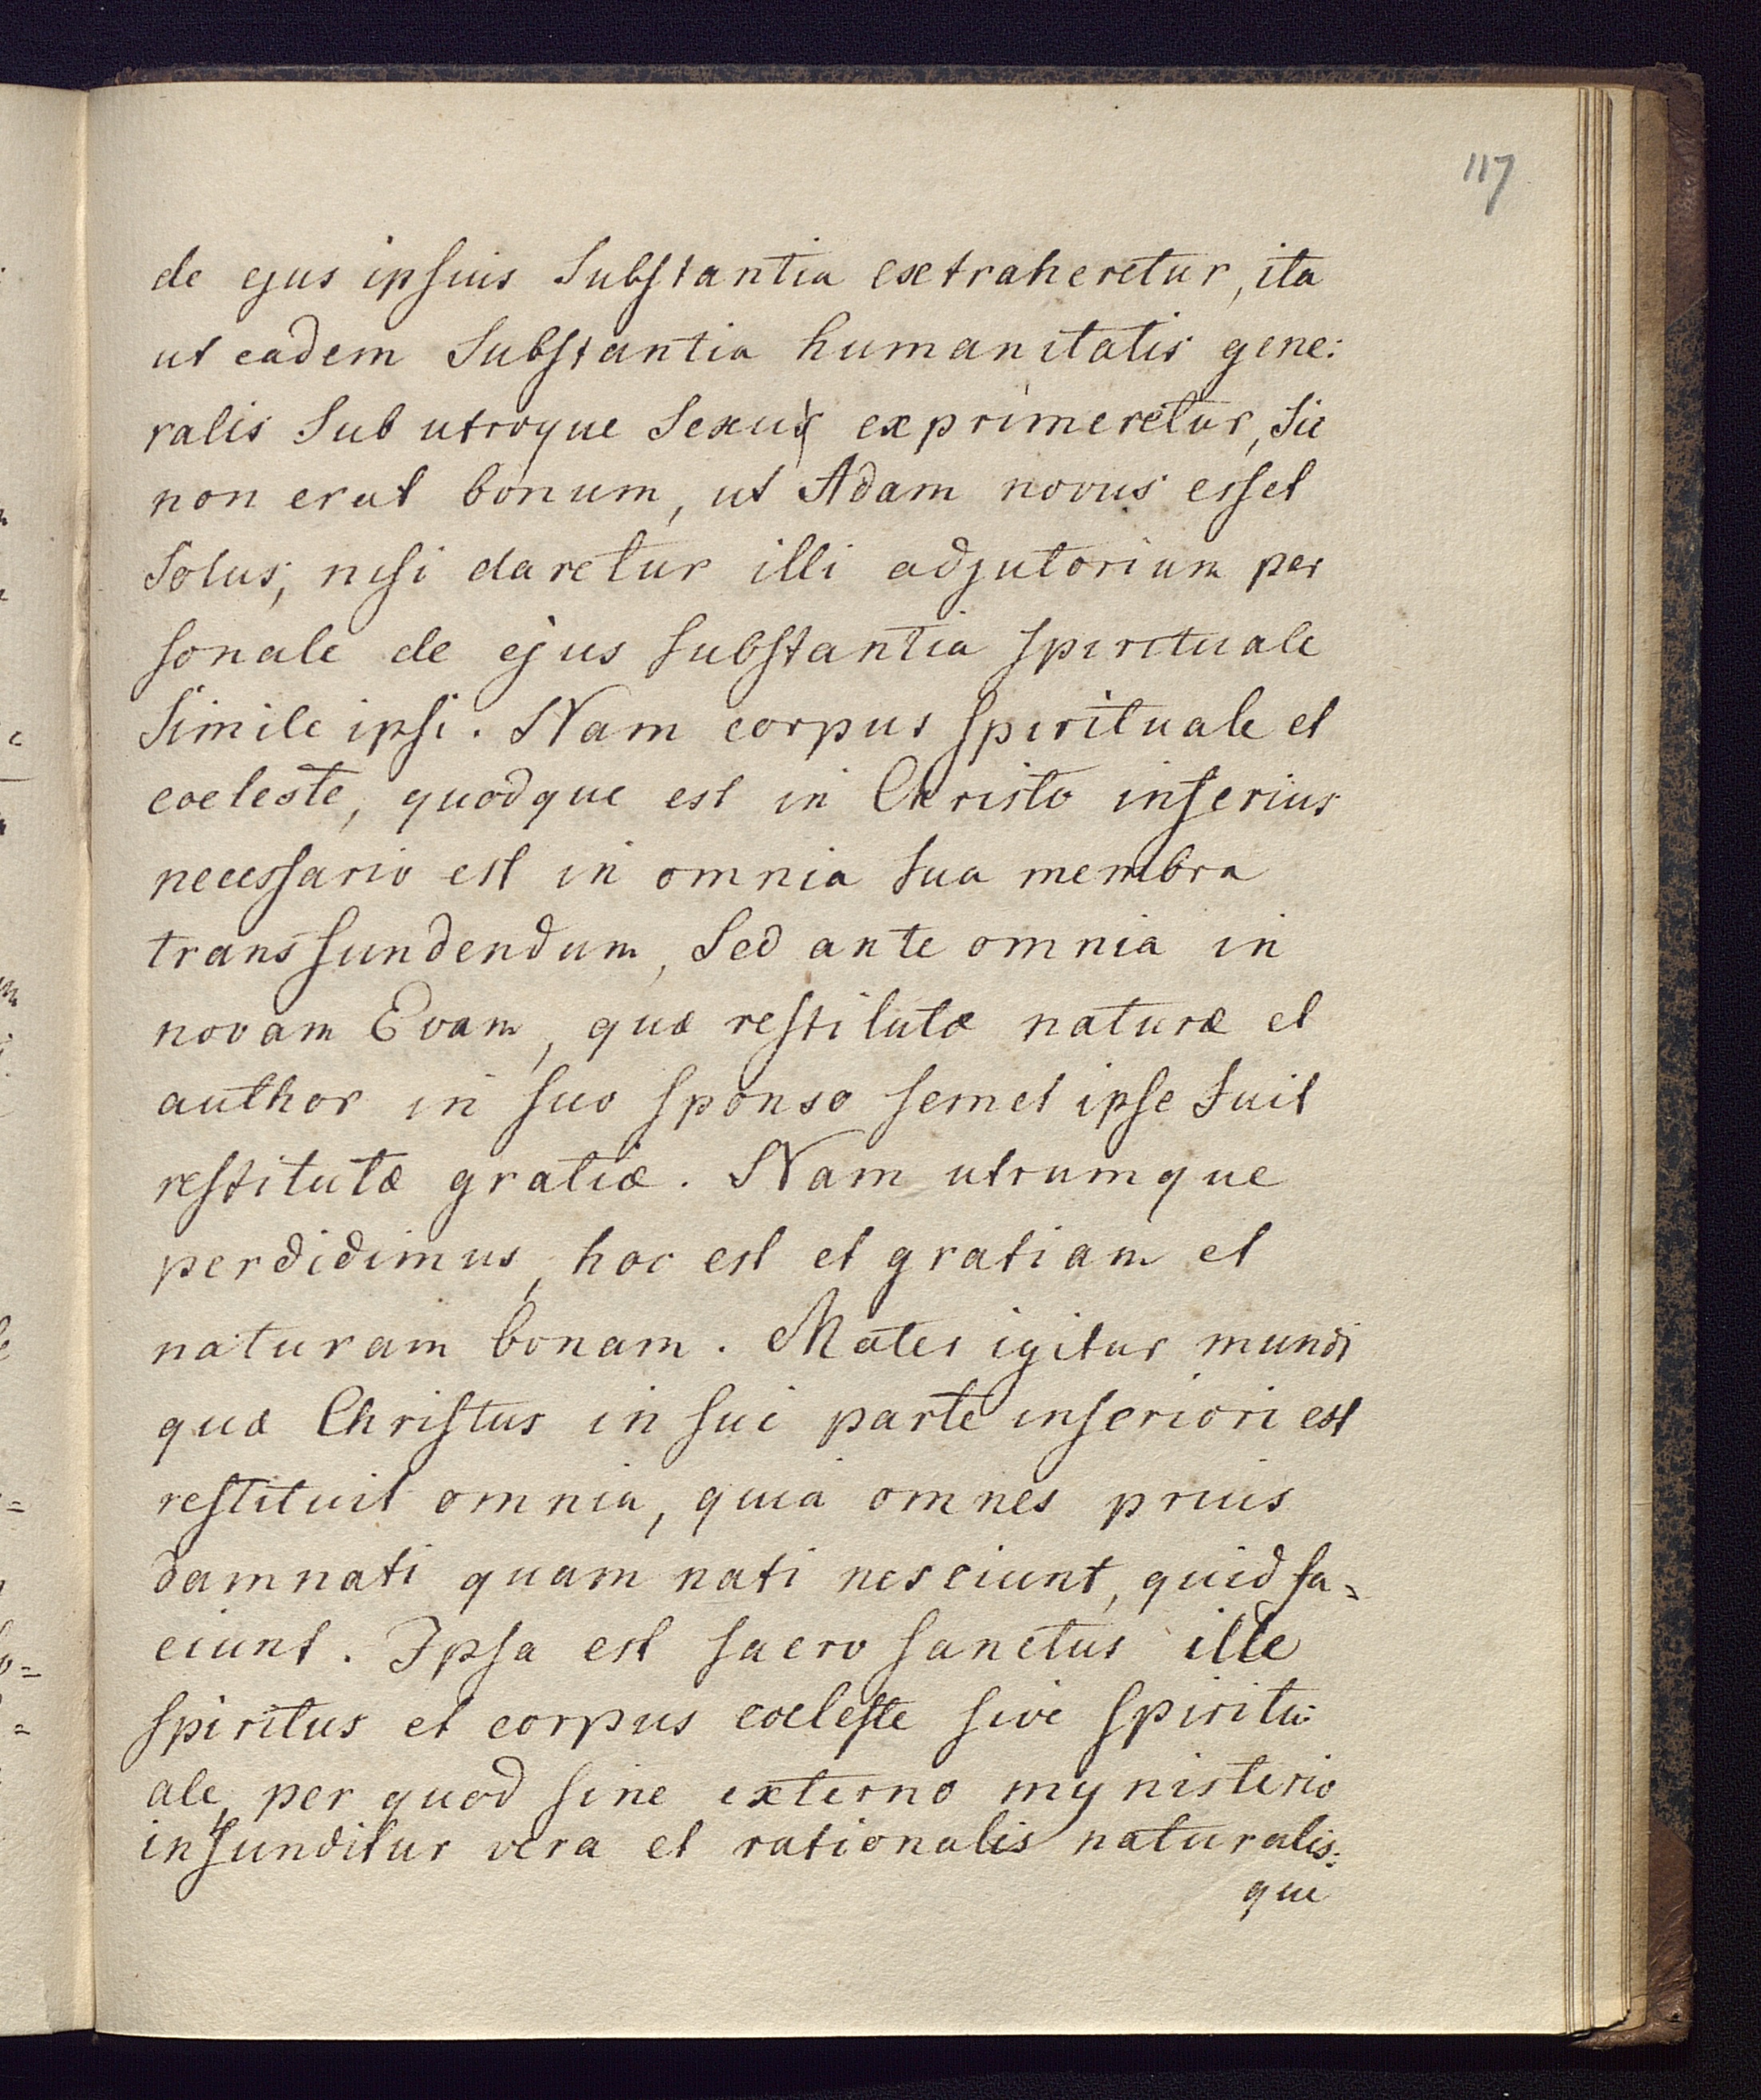 117
de ejus ipsius Substantia extraheretur, ita
ut eadem Substantia humanitatis gene:
ralis Sub utroque Sexu exprimeretur, Sic
non erat bonum, ut Adam novus esset
Solus, nisi daretur illi adjutorium per
sonale de ejus substantia spirituale
Simile ipsi. Nam corpus spirituale et
coeleste, quodque est in Christo inferius
necessario est in omnia sua membra
transfundendum, Sed ante omnia in
novam Evam, quæ restitutæ naturæ et
author in suo sponso semet ipse fuit
restitutæ gratiæ. Nam utrumque
perdidimus, hoc est et gratiam et
naturam bonam. Mater igitur mundi
quæ Christus in sui parte inferiori est
restituit omnia, quia omnes prius
damnati quam nati nesciunt, quid fa=
ciunt. Ipsa est sacro sanctus ille
spiritus et corpus coeleste sive spiritu=
ale, per quod sine externo mynisterio
infunditur vera et rationalis naturalis:
que